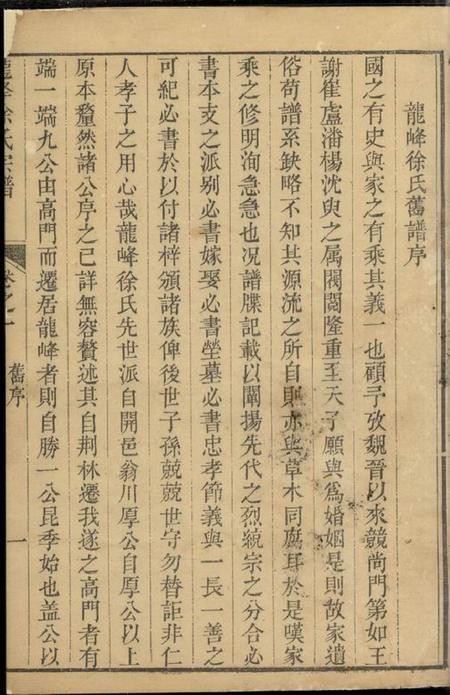 龍峰徐氏舊譜序
國之有史與家之有乘其義一也顧予攷魏晉以來競尚門第如王
謝崔盧潘楊沈臾之属閥閱隆重至天子願與爲婚姻是則故家遺
俗苟譜系缺略不知其源流之所自則亦與草木同腐耳於是嘆家
乘之修明洵急急也况譜牒記載以闡揚先代之烈統宗之分合必
書本支之派别必書嫁娶必書塋墓必書忠孝節義與一長一善之
可紀必書於以付諸梓頒諸族俾後世子孫兢兢世守勿替詎非仁
人孝子之用心哉龍峰徐氏先世派自開邑翁川厚公自厚公以上
原本釐然諸公序之已詳無容贅述其自荆林遷我遂之高門者有
端一端九公由高門而遷居龍峰者則自勝一公昆季始也盖公以
龍峰徐氏宗譜
卷之一
舊序
一